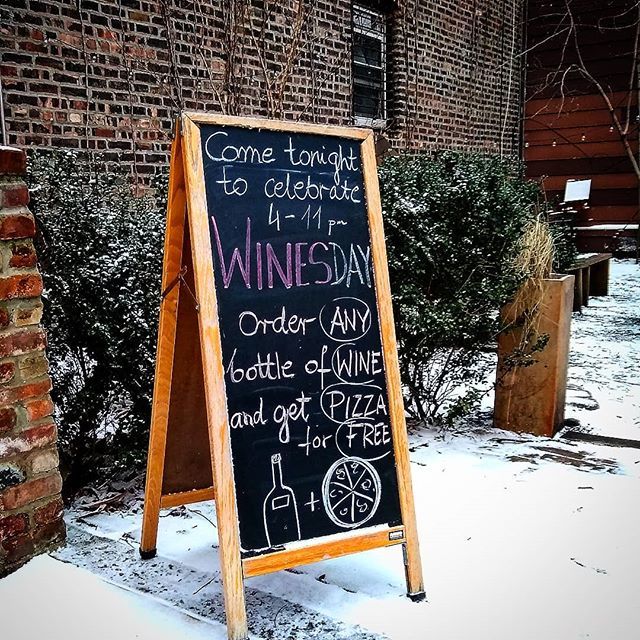 Come tonight
to celebrate
4-11 pm
WINESDAY
Order ANY
bottle of WINE
and get PIZZA
for FREE
+